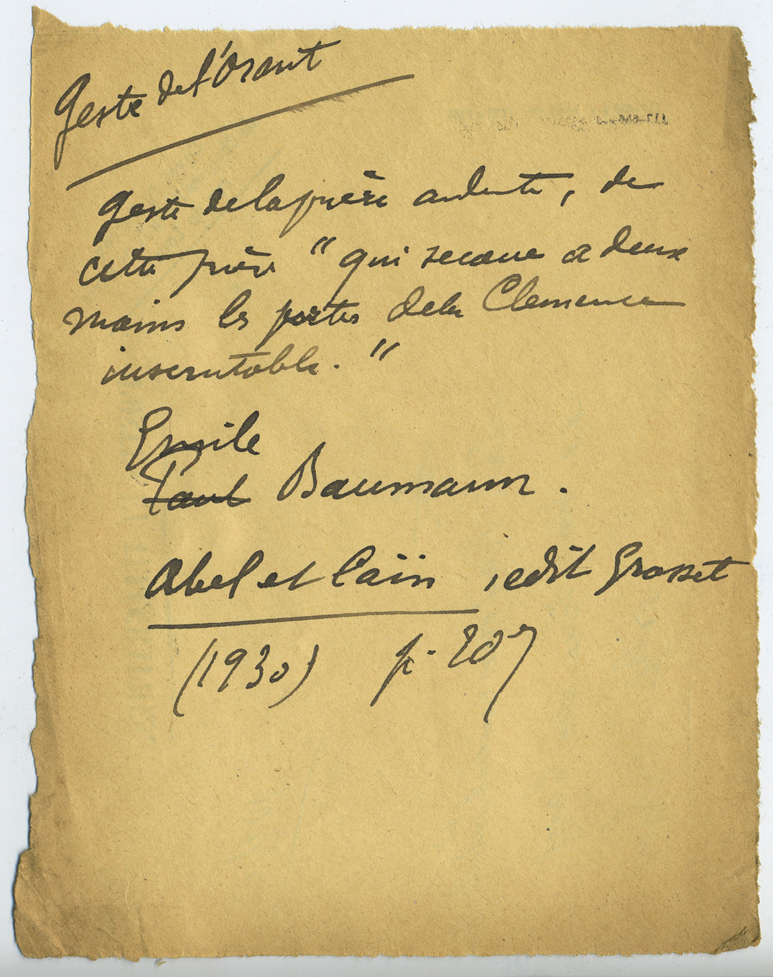 Geste de l'Orant
geste de la prière ardente, de
cette prière "qui secoue a deux
mains les portes de la Clemence
inscrutable."
Emile
Paul Baumann.
Abel et Caïn, edit Grasset
(1930) p. 207